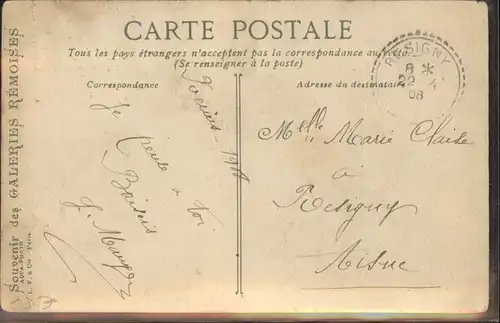 CARTE POSTALE
Tous les pays étrangers n'acceptent pas la correspondance au recto
(Se renseigner à la poste)
Correspondance
Adresse du destinataire
RESIGNY
8 *
22 4
08
Je
pense à toi
Baisers
Melle Marie Claise
à
Resigny
Aisne
Souvenir des GALERIES RÉMOISES